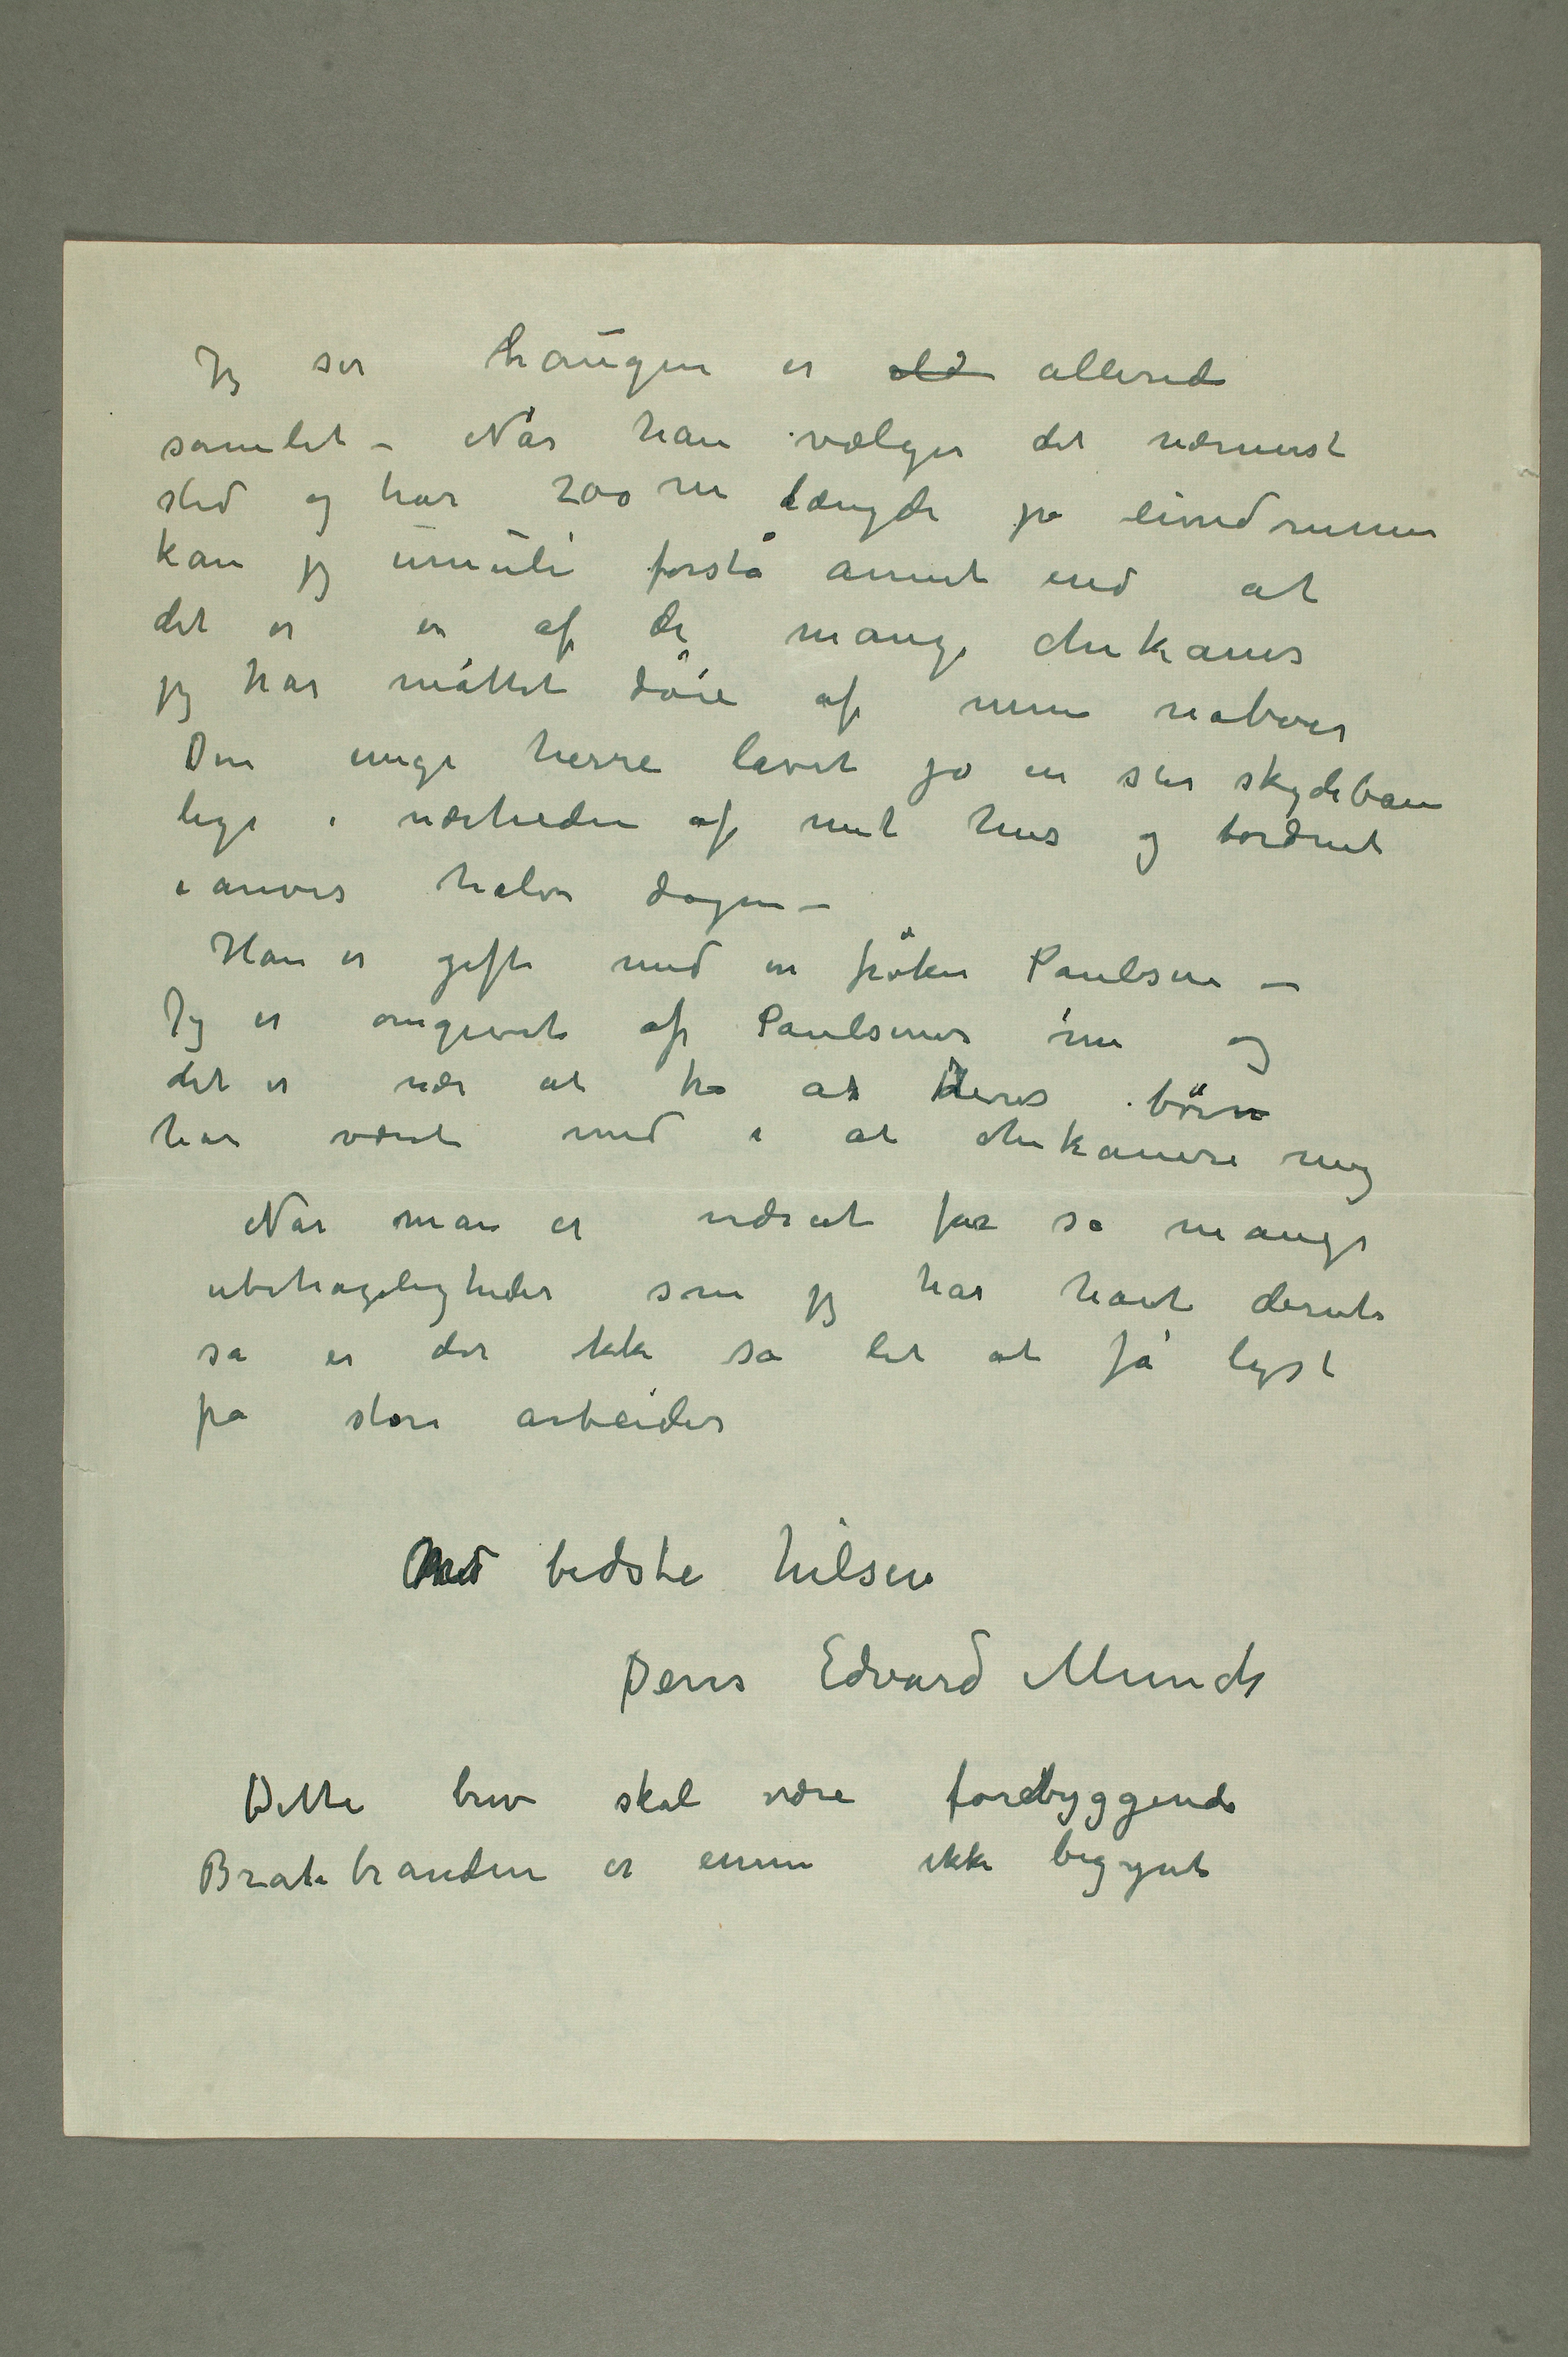 Jeg ser haugen er ald allerede
samlet – Når han vælger det nærmest
sted og har 200 m længde på eiendommen
kan jeg umuli forstå annet end at
det er en af de mange chikaner
jeg har måttet døie af mine naboer
Den unge herre lavet jo en stor skydebane
lige i nærheden af mit hus og tordnet
i anvis halve dagen –
Han er gift med en frøken Paulsen –
Jeg er omgivet af Paulsener nu og
det er nær at tro at deres børn
har været med i at chikanere mig
Når man er uds at for så mange
ubehageligheder som jeg har havt derute
så er det ikke så let at få lyst
på store arbeider
Med bedste hilsen
Deres Edvard Munch
Dette brev skal være forebyggende
Bråtebranden er ennu ikke begynt